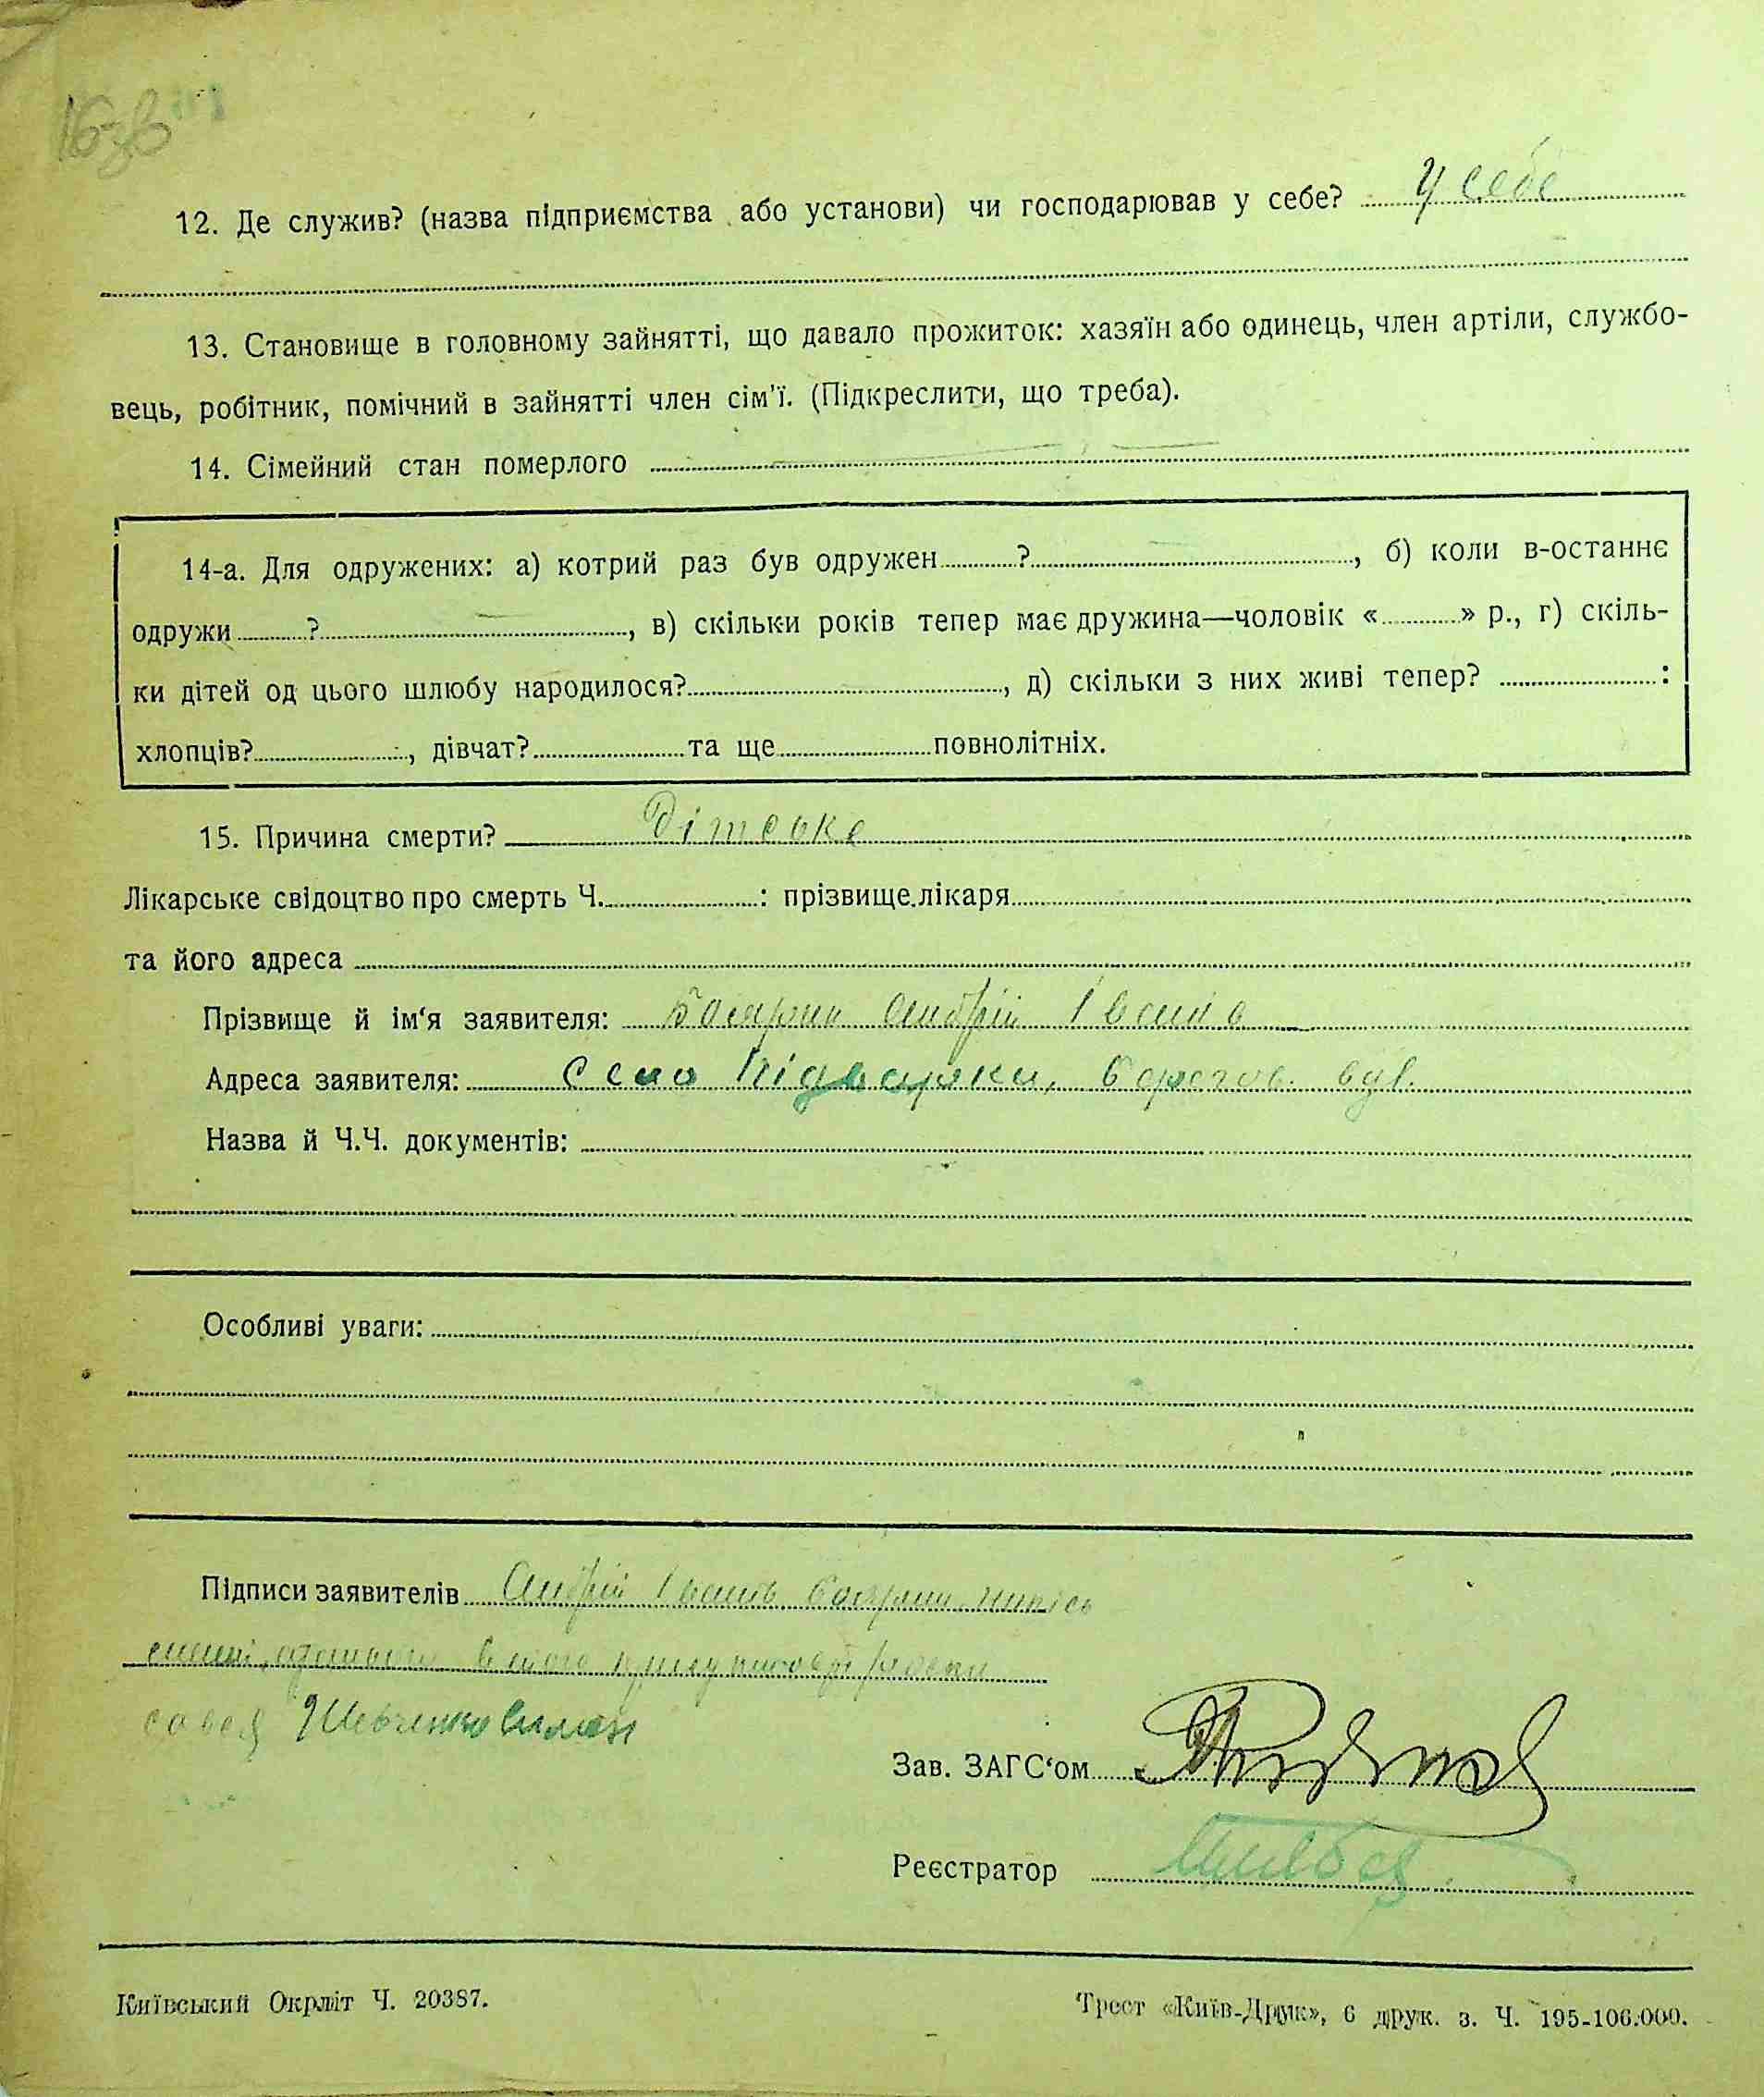 16зв
12. Де служив? (назва підприємства або установи) чи господарював у себе? У себе
13. Становище в головному зайнятті, що давало прожиток: хазяїн або одинець, член артіли, службо-
вець, робітник, помічний в зайнятті член сім'ї. (Підкреслити, що треба).
14. Сімейний стан померлого
14-а. Для одружених: а) котрий раз був одружен ?, б) коли в-останнє
одружи ?, в) скільки років тепер має дружина—чоловік « » р., г) скіль-
ки дітей од цього шлюбу народилося?, д) скільки з них живі тепер? :
хлопців?, дівчат? та ще повнолітніх.
15. Причина смерти? Дітське
Лікарське свідоцтво про смерть Ч. : прізвище лікаря
та його адреса
Прізвище й ім'я заявителя: Боярин Андрій Іванів
Адреса заявителя: Село Підварки,
Назва й Ч.Ч. документів:
Особливі уваги:
Підписи заявителів Андрій Іванів Боярин
Шевченко
Зав. ЗАГС'ом
Реєстратор
Київський Окрліт Ч. 20387.
Трест «Київ-Друк», 6 друк. з. Ч. 195-106.000.